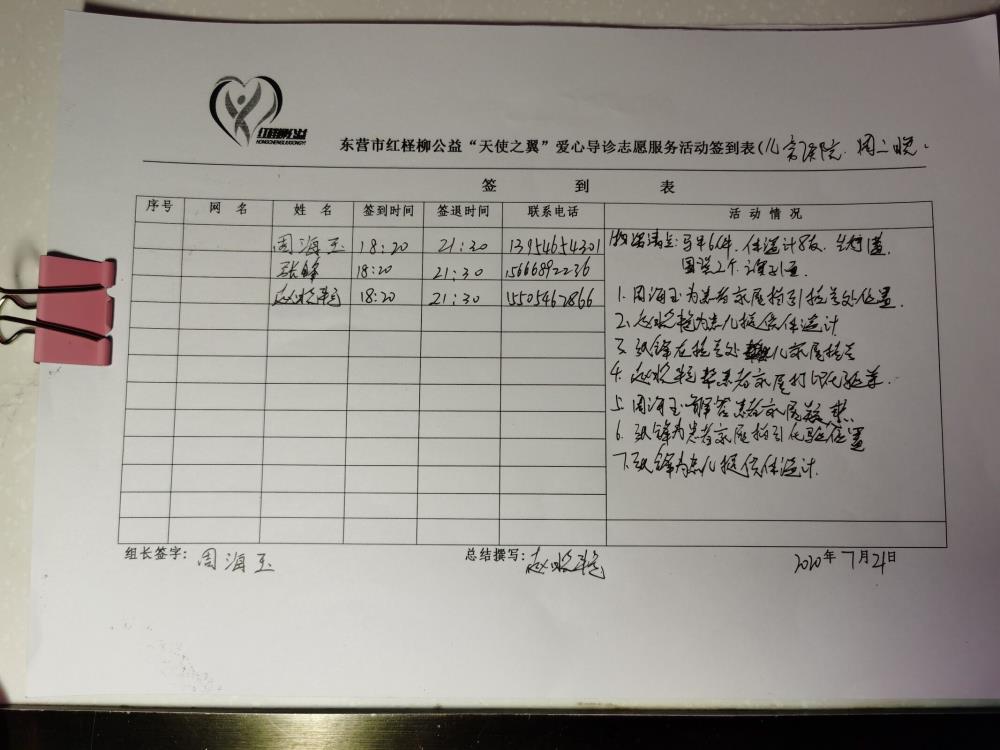 红柽柳公益
HONGCHENGLIUGONGYI
东营市红柽柳公益“天使之翼”爱心导诊志愿服务活动签到表(儿童医院.周二晚.
签 到 表
序号 网 名 姓 名 签到时间 签退时间 联系电话 活 动 情 况
周海玉 18:20 21:30 13954654301 物资清点:马甲6件.体温计8支.
张锋 18:20 21:30 15666892236 2个.
赵晓艳 18:20 21:30 15505462866 1.周海玉为患者家属指引挂号处位置.
2.赵晓艳为患儿提供体温计
3.张锋在挂号处 儿家属挂号
4.赵晓艳帮患者家属打印化验单.
5.周海玉解答患者家属
6.张锋为患者家属指引化验位置
7.张锋为患儿提供体温计.
组长签字: 周海玉 总结撰写: 赵晓艳 2020年7月21日